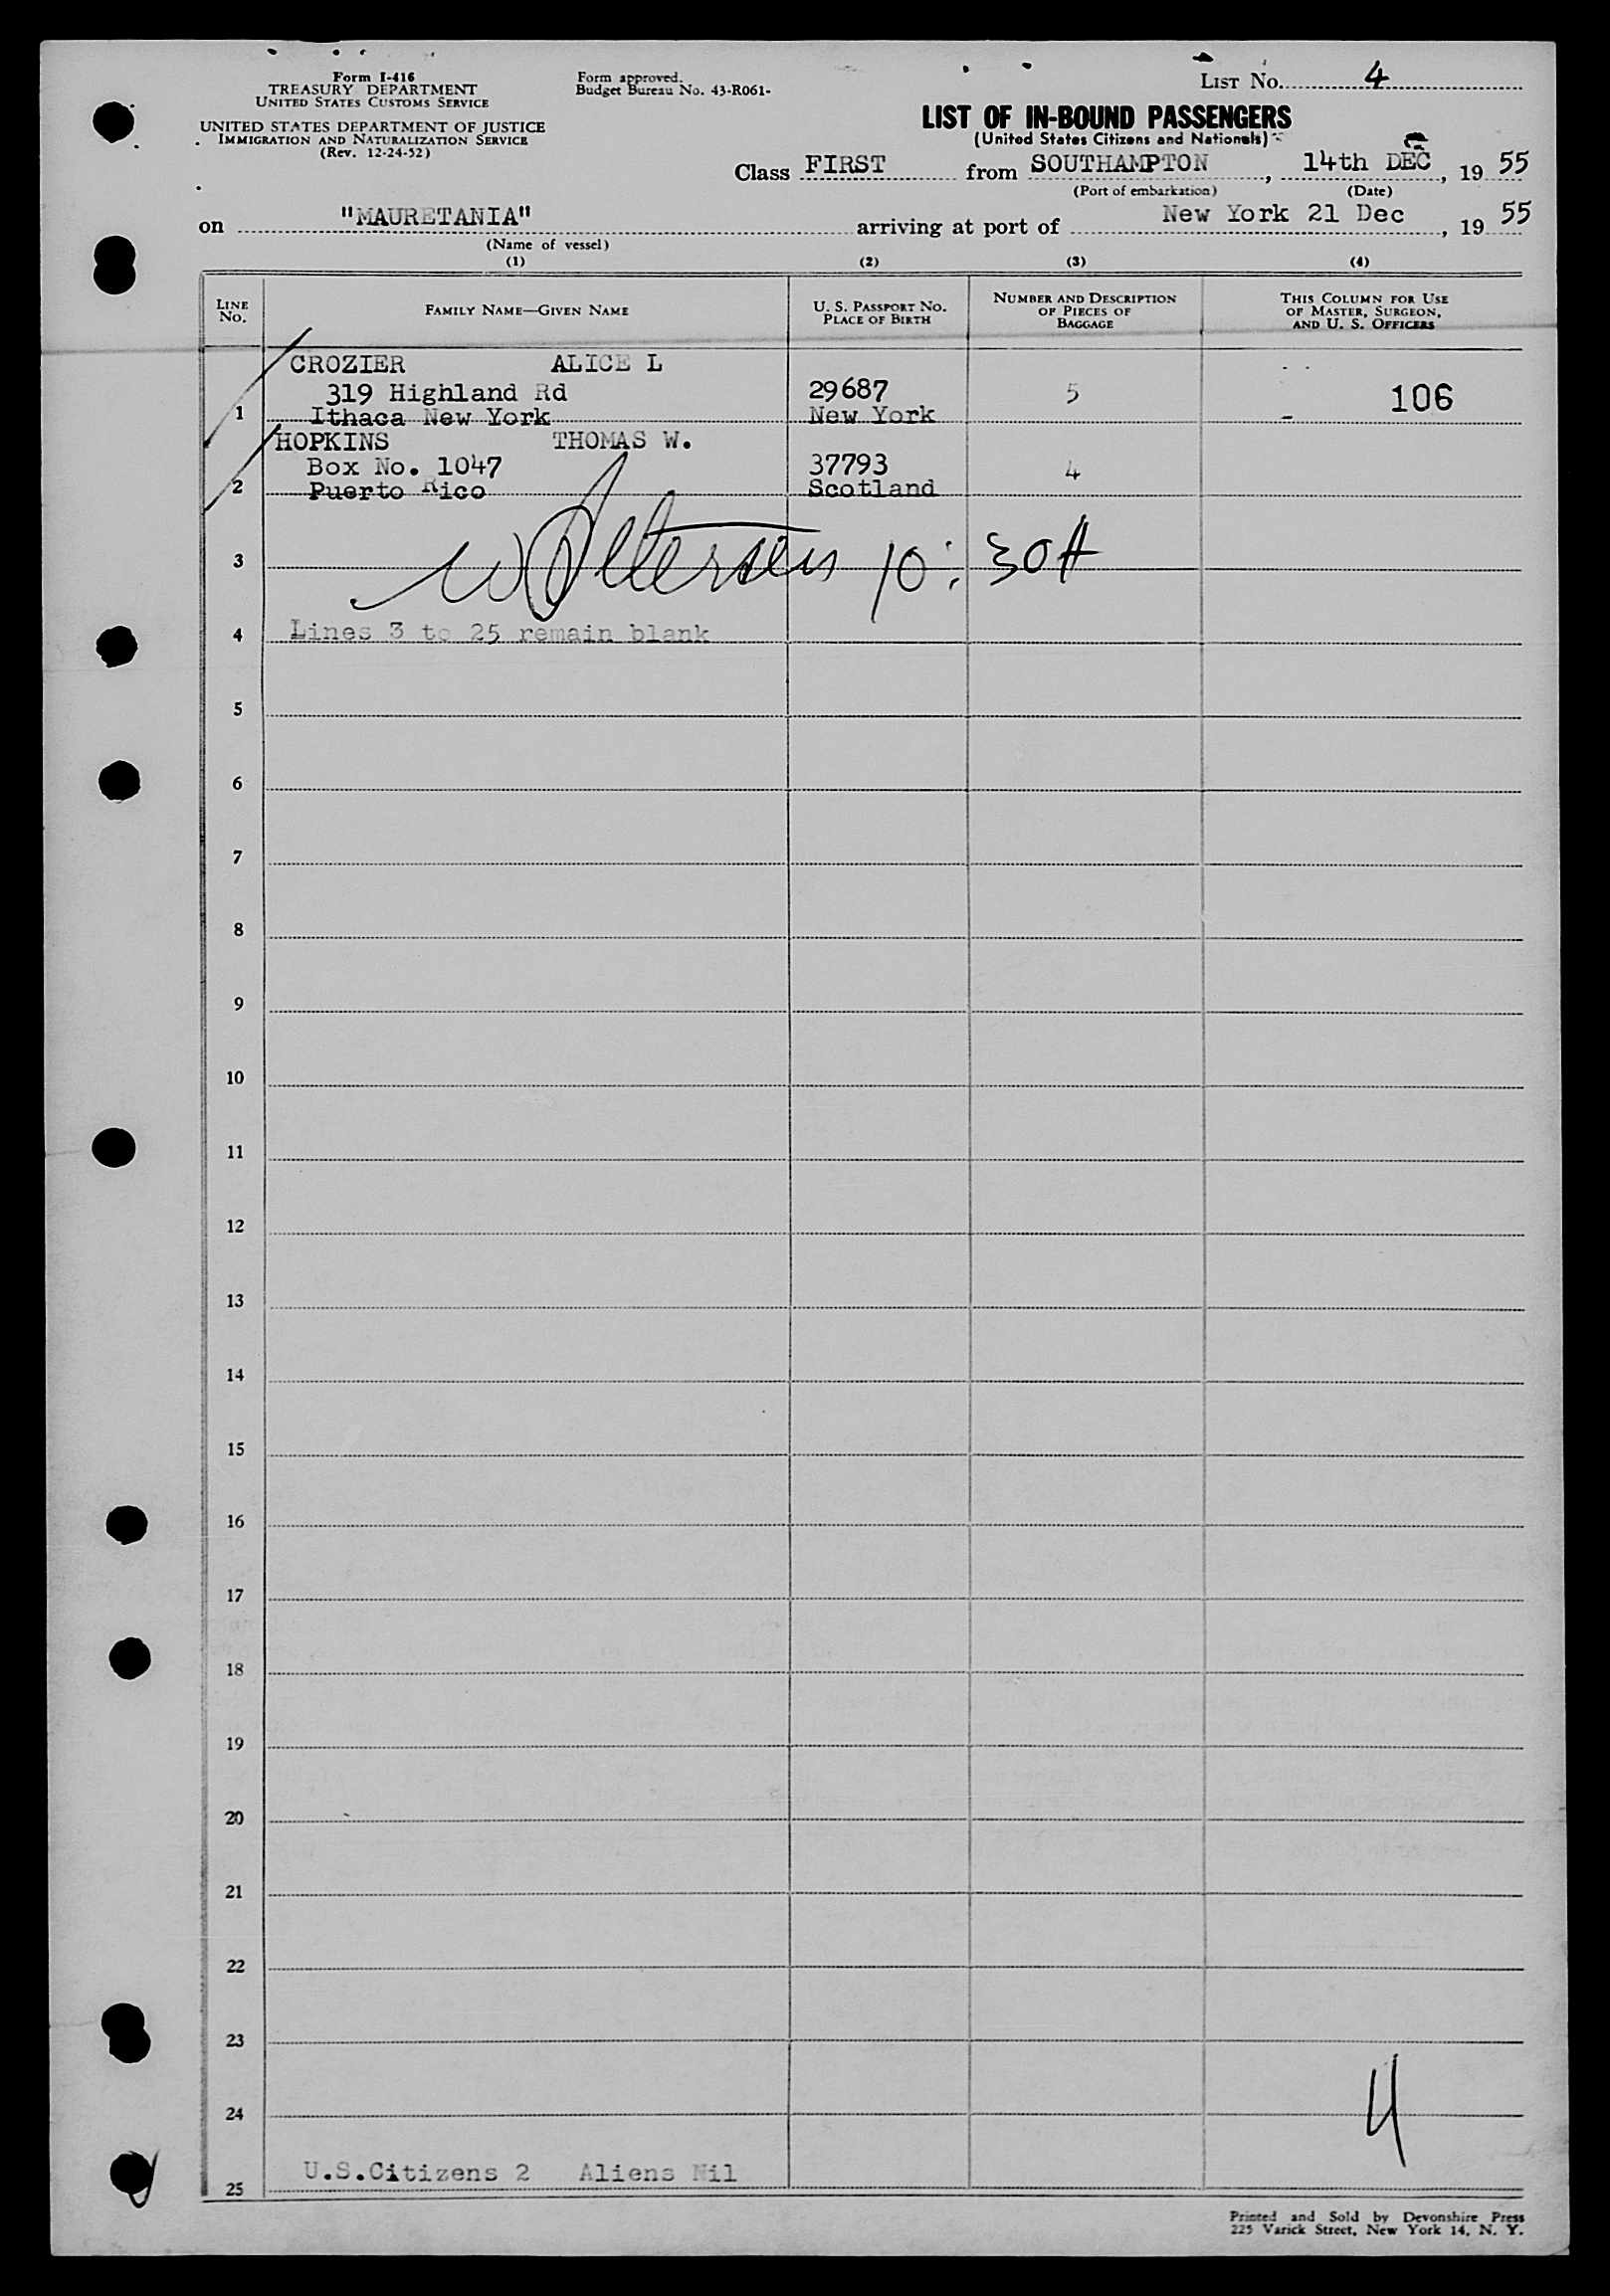 Form I-416
TREASURY DEPARTMENT
UNITED STATES CUSTOMS SERVICE
UNITED STATES DEPARTMENT OF JUSTICE
IMMIGRATION AND NATURALIZATION SERVICE
(Rev. 12-24-52)
Form approved.
Budget Bureau No. 43-R061-
LIST NO. 4
LIST OF IN-BOUND PASSENGERS
(United States Citizens and Nationals)
Class FIRST from SOUTHAMPTON, 14th DEC, 19 55
(Port of embarkation) (Date)
on "MAURETANIA" arriving at port of New York 21 Dec, 19 55
(Name of vessel)
(1) (2) (3) (4)
LINE NO. FAMILY NAME—GIVEN NAME U. S. PASSPORT NO. PLACE OF BIRTH NUMBER AND DESCRIPTION OF PIECES OF BAGGAGE THIS COLUMN FOR USE OF MASTER, SURGEON, AND U. S. OFFICERS
CROZIER ALICE L
319 Highland Rd 29687 5 106
1 Ithaca New York New York
HOPKINS THOMAS W.
Box No. 1047 37793 4
2 Puerto Rico Scotland
3 W Petersen 10:30A
4 Lines 3 to 25 remain blank
5
6
7
8
9
10
11
12
13
14
15
16
17
18
19
20
21
22
23
24 4
25 U.S.Citizens 2 Aliens Nil
Printed and Sold by Devonshire Press
225 Varick Street, New York 14, N. Y.